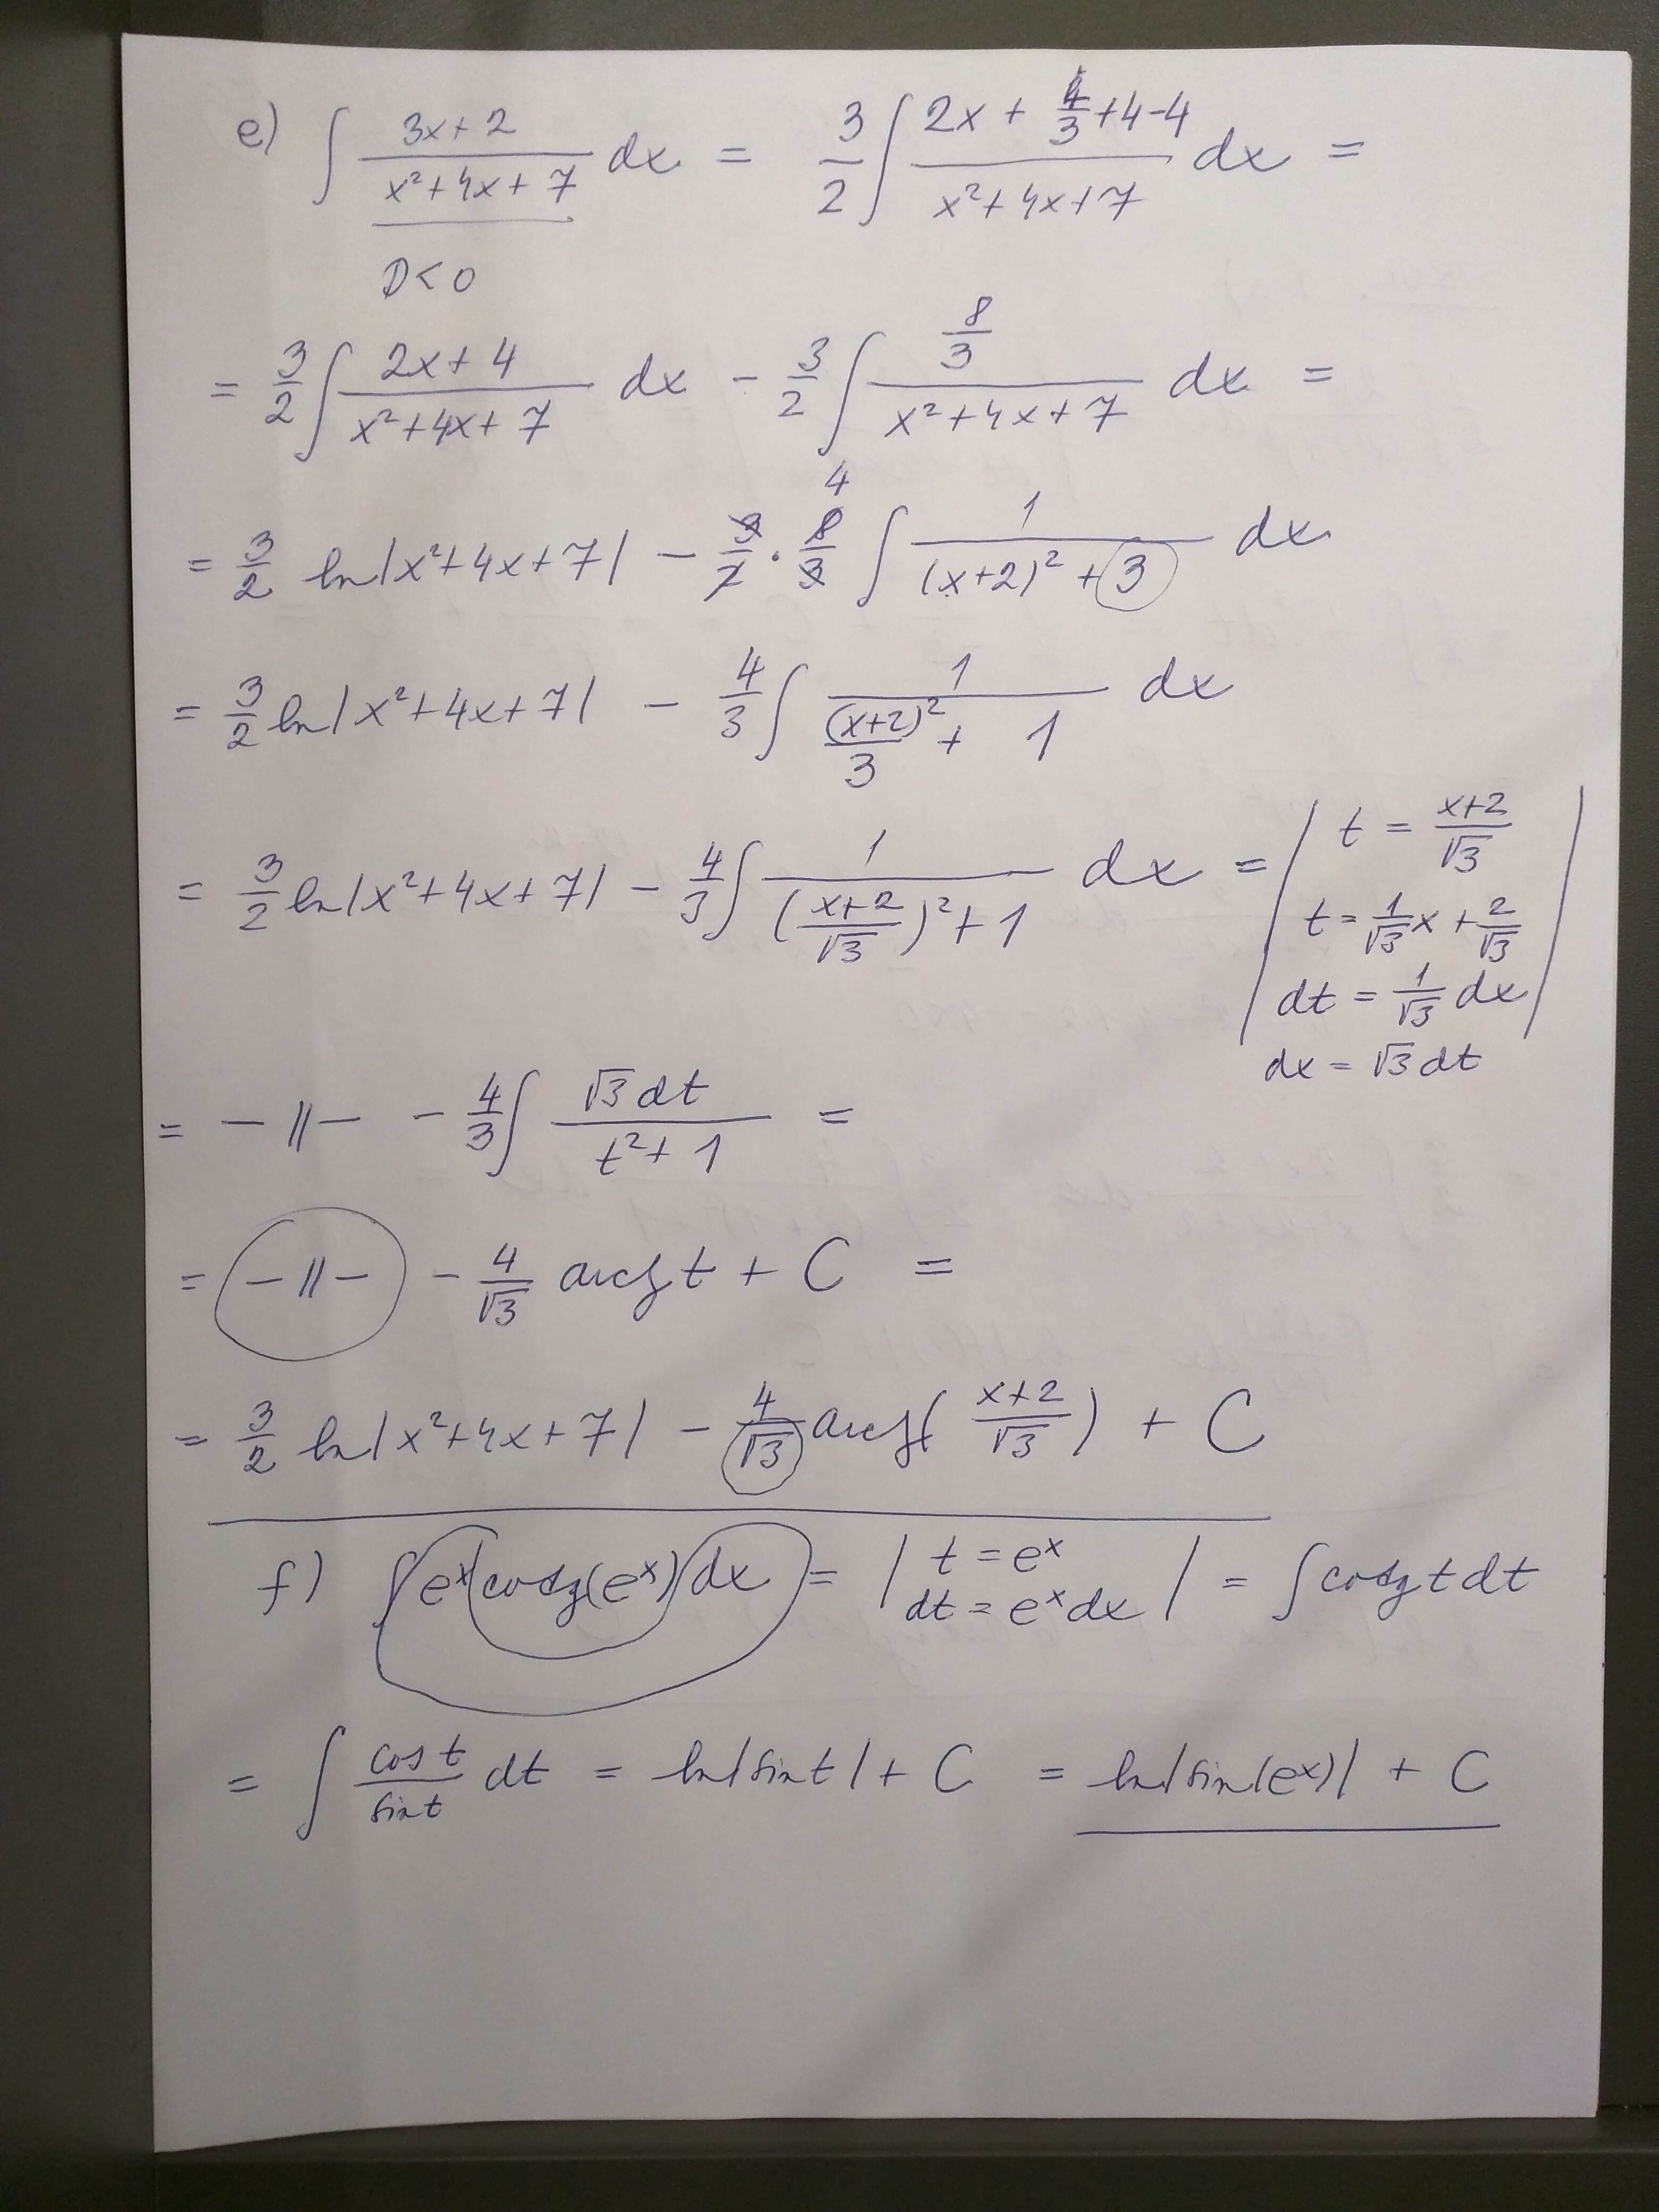 e) ∫ (3x+2)/(x²+4x+7) dx = 3/2 ∫ (2x + 4/3 +4-4)/(x²+4x+7) dx =
D<0
= 3/2 ∫ (2x+4)/(x²+4x+7) dx - 3/2 ∫ (8/3)/(x²+4x+7) dx =
4
= 3/2 ln|x²+4x+7| - 3/2 · 8/3 ∫ 1/((x+2)²+3) dx
= 3/2 ln|x²+4x+7| - 4/3 ∫ 1/((x+2)²/3 + 1) dx
= 3/2 ln|x²+4x+7| - 4/3 ∫ 1/(((x+2)/√3)²+1) dx = | t = (x+2)/√3 |
t = 1/√3 x + 2/√3
dt = 1/√3 dx
dx = √3 dt
= -||- - 4/3 ∫ √3 dt/(t²+1) =
= -||- - 4/√3 arctg t + C =
= 3/2 ln|x²+4x+7| - 4/√3 arctg((x+2)/√3) + C
f) ∫ eˣ cotg(eˣ) dx = | t = eˣ
dt = eˣdx | = ∫ cotg t dt
= ∫ cos t/sin t dt = ln|sin t| + C = ln|sin(eˣ)| + C